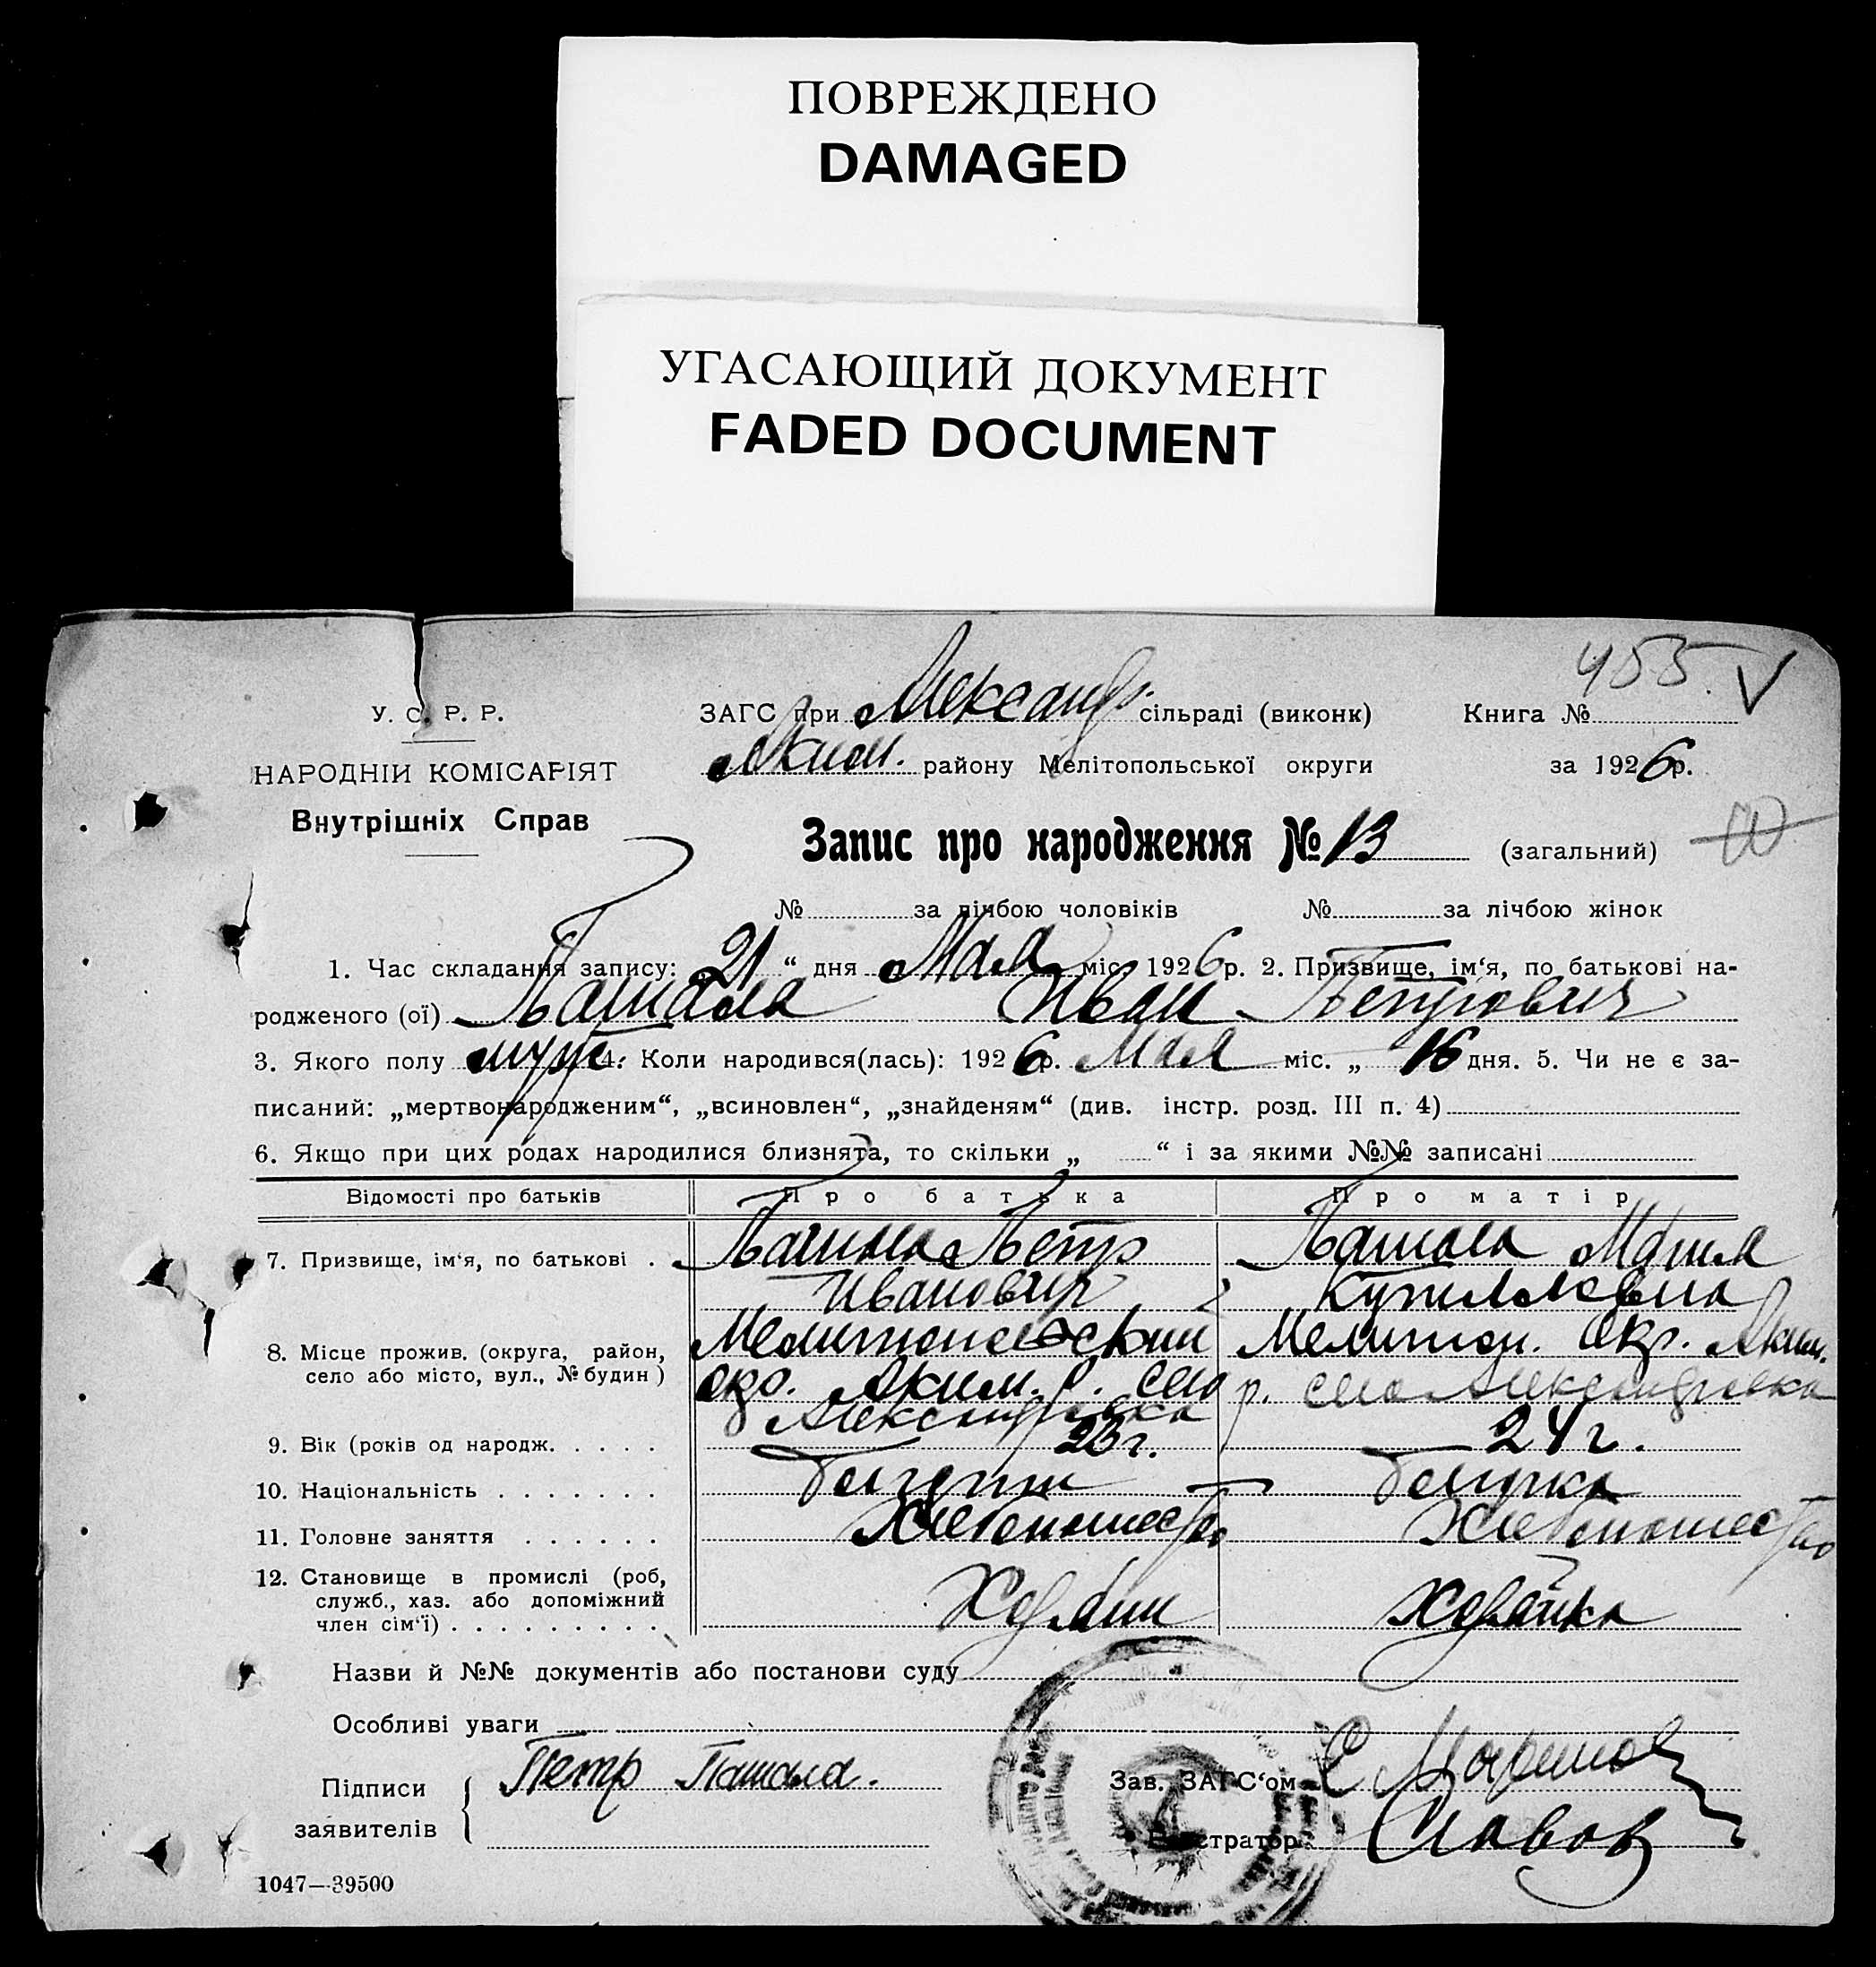 ПОВРЕЖДЕНО
DAMAGED
УГАСАЮЩИЙ ДОКУМЕНТ
FADED DOCUMENT
455. V
У. С. Р. Р.
ЗАГС при Александр. сільраді (виконк) Книга №
НАРОДНІЙ КОМІСАРІЯТ
Внутрішніх Справ
Аким. району Мелітопольської округи за 1926 р.
Запис про народження № 13 (загальний)
№ за лічбою чоловіків № за лічбою жінок
1. Час складання запису: „21“ дня Мая міс. 1926 р. 2. Призвище, ім‘я, по батькові на-
родженого (ої) Пашала Иван Петрович
3. Якого полу муж. 4. Коли народився(лась): 1926 р. Мая міс. „ 16 дня. 5. Чи не є за-
писаний: „мертвонародженим“, „всиновлен“, „знайденям“ (див. інстр. розд. III п. 4)
6. Якщо при цих родах народилися близнята, то скільки „ “ і за якими №№ записані
Відомості про батьків Про батька Про матір
7. Призвище, ім‘я, по батькові . Пашала Петр Пашала Мария
Иванович Кирилловна
8. Місце прожив. (округа, район, село або місто, вул., № будин) Мелитопольский Мелитоп. окр. Аким.
окр. Аким. р. село р. село Александровка
Александровка
9. Вік (років од народж. . . . . 23 г. 24 г.
10. Національність . . . . . . . Болгарин Болгарка
11. Головне заняття . . . . . . Хлебопашество Хлебопашество
12. Становище в промислі (роб,
служб., хаз. або допоміжний
член сім‘ї) . . . . . . . . . Хозяин Хозяйка
Назви й №№ документів або постанови суду
Особливі уваги
Підписи
заявителів
Петр Пашала.
Зав. ЗАГС‘ом
Реєстратор Славов
1047—39500